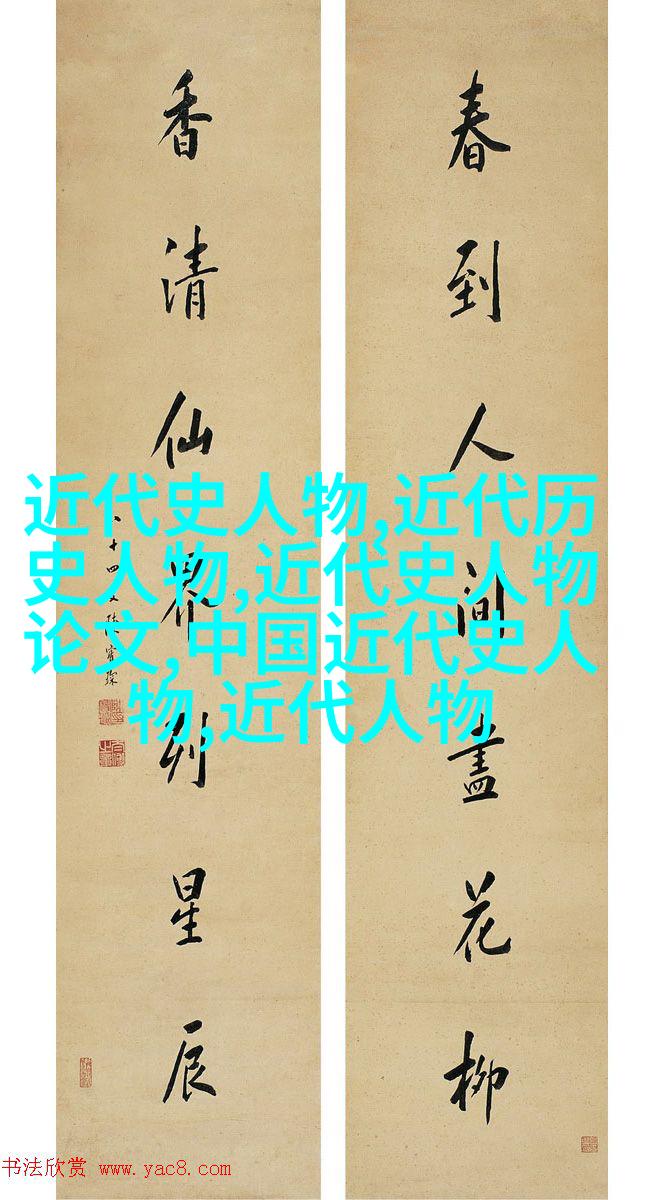 春到人间盡花柳
香清仙界列星辰
近代史人物,近代历
史人物,近代史人物
论文,中国近代史人
物,近代人物
书法欣赏 www.yac8.com